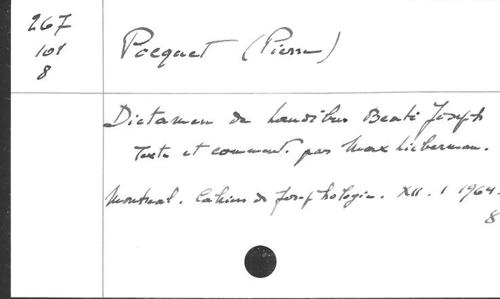 267
101
8
Pocquet (Pierre)
Dictamen de laudibus Beati Joseph
Texte et comment. par Max Lieberman.
Montreal. Cahiers de Josephologie. XII. 1 1964.
8